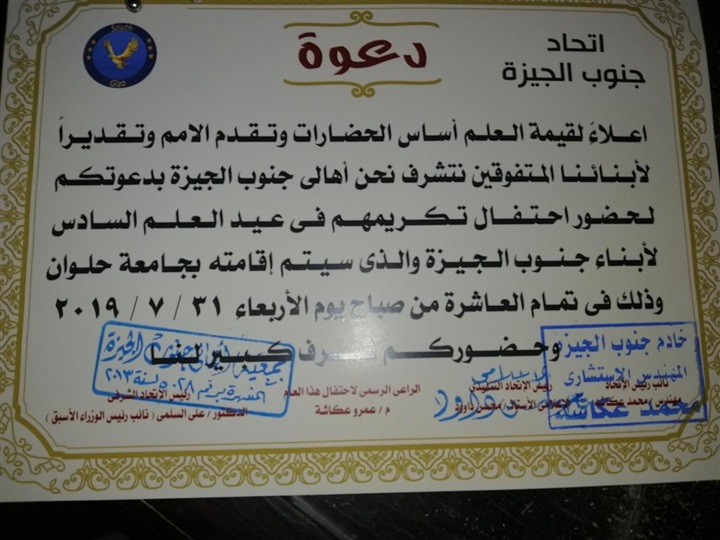 South
Giza
دعوة
اتحاد
جنوب الجيزة
اعلاءً لقيمة العلم أساس الحضارات وتقدم الامم وتقديراً
لأبنائنا المتفوقين نتشرف نحن أهالى جنوب الجيزة بدعوتكم
لحضور احتفال تكريمهم فى عيد العلم السادس
لأبناء جنوب الجيزة والذى سيتم إقامته بجامعة حلوان
وذلك فى تمام العاشرة من صباح يوم الأربعاء ٣١ / ٧ / ٢٠١٩
وحضوركم شرف كبير لنا
خادم جنوب الجيزة
المهندس الاستشارى
محمد عكاشة
نائب رئيس الإتحاد
مهندس محمد عكاشة
رئيس الاتحاد التنفيذى
الأستاذ / محسن داوود
الراعى الرسمى لاحتفال هذا العام
م / عمرو عكاشة
رئيس الاتحاد الشرفى
الدكتور / على السلمى ( نائب رئيس الوزراء الأسبق )
جنوب الجيزة
المشهرة برقم ٥٠٢٨ لسنة ٢٠١٣